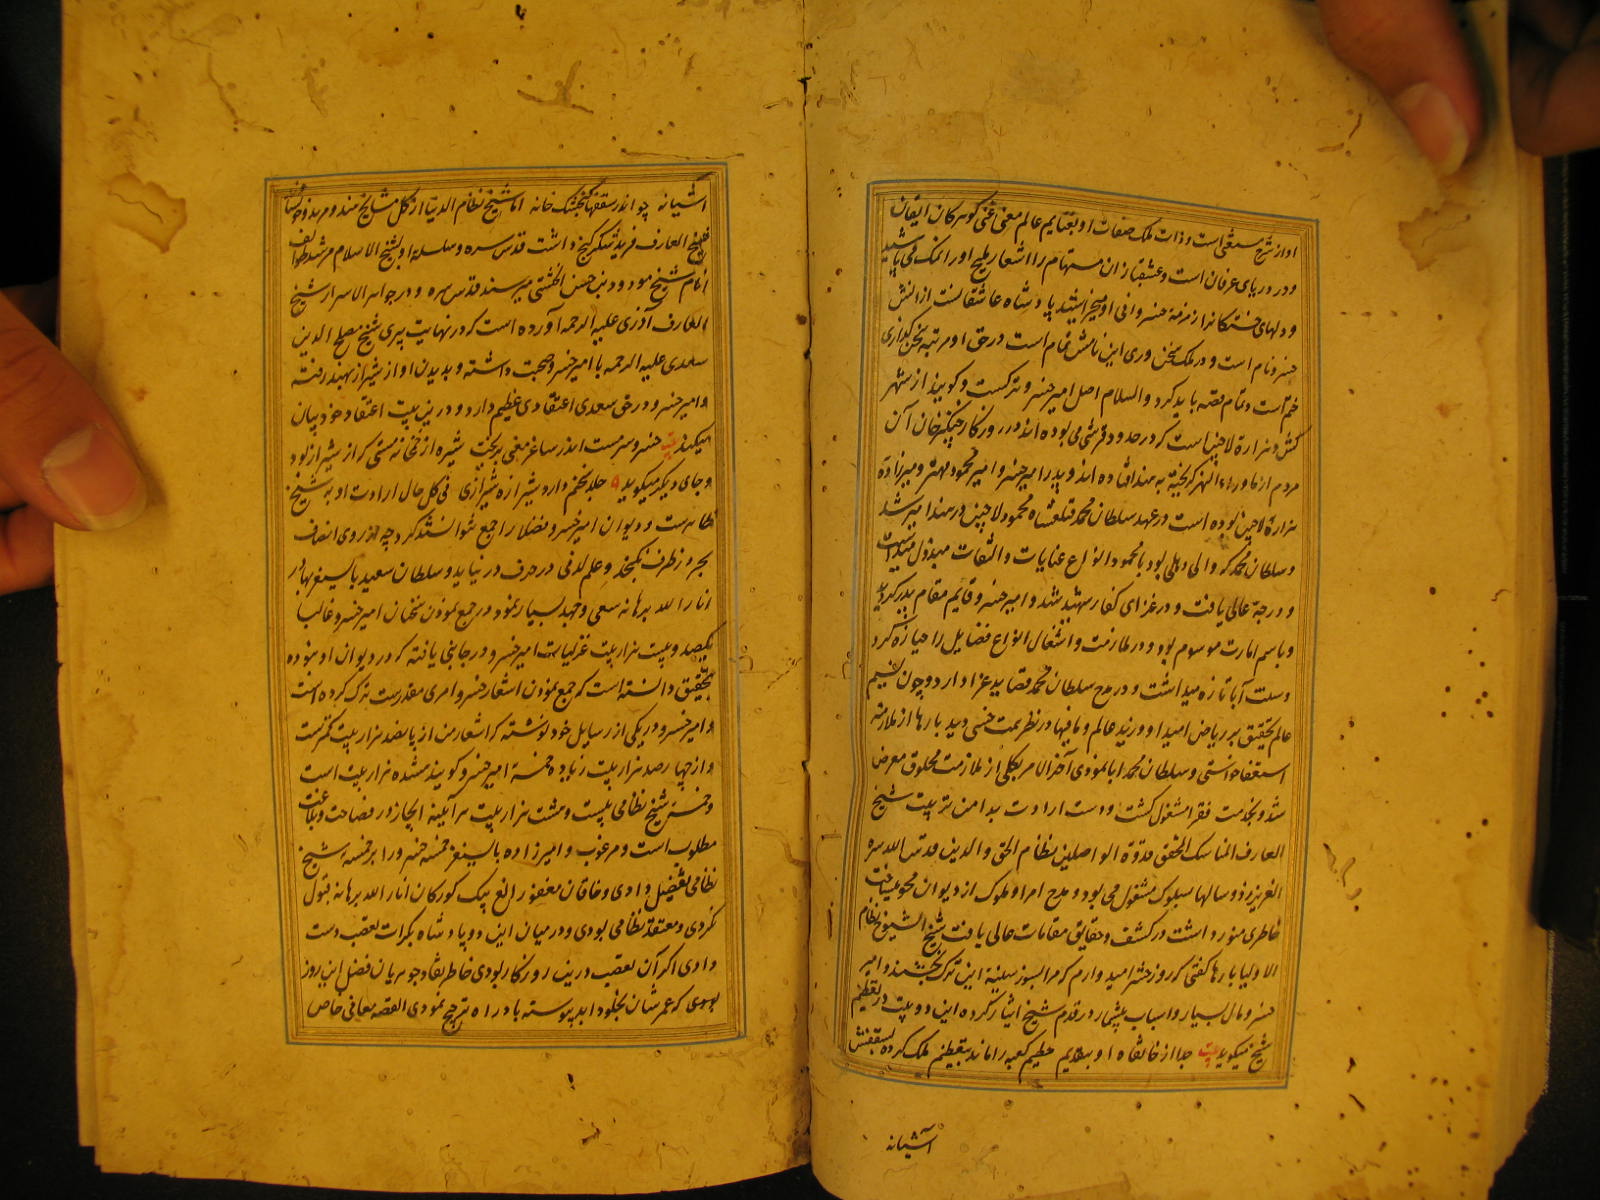 او از شرح مستغنی است و ذات ملک صفات او بغنایم عالم معنی غنی گوهر کان ایقان
و در دریای عرفان است و عشقبازان مستهام را اشعار ملیح او را نمک می پاشید
و دلهای خستگان را زمزمهٔ خسروانی او میخراشید پادشاه عاشقانست ازانش
خسرو نام است و در ملک سخن وری این نامش تمام است در حق او مرتبه سخن گذاری
ختم است و تمام قصه باید کرد والسلام اصل امیر خسرو ترکست و گویند از شهر
کش و هزارهٔ لاچین است که در حدود قرشی می بوده اند در روزگار چنگیز خان آن
مردم از ماوراء النهر گریخته بهند افتاده اند و پدر امیر خسرو امیر محمود مهتر و میرزاده
هزارهٔ لاچین بوده است در عهد سلطان محمد تغلقشاه محمود لاچین در هند امیر شد
و سلطان محمد که والی دهلی بود با محمود انواع عنایات و التفات مبذول میداشت
و درجهٔ عالی یافت و در غزای کفار شهید شد و امیر خسرو قایم مقام پدر گردید
و باسم امارت موسوم بود و در ملازمت و اشتغال انواع فضایل را حیازه کرد
و سنت آبا تازه میداشت و در مدح سلطان محمد قصاید غزا دارد و چون نسیم
عالم تحقیق بر ریاض امید او وزید عالم و مافیها در نظر همت خسی دید بارها از ملازمت
استعفا خواستی و سلطان محمد ابا نمودی آخر الامر بکلی از ملازمت مخلوق معرض
شد و بخدمت فقرا مشغول گشت و دست ارادت بدامن تربیت شیخ
العارف الناسک المحقق قدوة الواصلین نظام الحق والدین قدس الله سره
العزیز زد و سالها بسلوک مشغول می بود و مدح امرا و ملوک از دیوان محو میساخت
خاطری منور داشت در کشف و حقایق مقامات عالی یافت شیخ الشیوخ نظام
الاولیا بارها گفتی که روز حشر امید وارم که مرا بسوز سینهٔ این ترک بخشند و امیر
خسرو مال بسیار و اسباب بیشمار در قدم شیخ ایثار کرده این دو بیت در تعظیم
شیخ میگوید بیت جدا از خانقاه او بتقدیم حطیم کعبه را ماند بتعظیم ملک کرده بسقفش
آشیانه
اشیانه چو اندر سقفها گنجشک خانه اما شیخ نظام الدنیا از کل مشایخ هند و مرید و
شیخ العارف فرید شکر گنج داشت قدس سره و سلسله او بشیخ الاسلام مرشد طوایف
انام شیخ مودود بن حسن الچشتی میرسند قدس سره و در جواهر الاسرار شیخ
العارف آذری علیه الرحمه آورده است که در نهایت پیری شیخ مصلح الدین
سعدی علیه الرحمه با امیر خسرو صحبت داشته و بدیدن او از شیراز بهند رفته
و امیر خسرو در حق سعدی اعتقادی عظیم دارد و درین بیت اعتقاد خود بیان
میکند بیت خسرو سرمست اندر ساغر معنی بریخت شیره از خمخانهٔ مستی که از شیراز بود
و جای دیگر میگوید جلد سخنم دارد شیرازه شیرازی فی کل حال ارادت او بشیخ
ظاهرست و دیوان امیر خسرو فضلا را جمع نتوانستند کرد چه از روی انصاف
بحر در ظرف نگنجد و علم لدنی در حرف در نیاید و سلطان سعید بایسنغر بهادر
انار الله برهانه سعی و جهد بسیار نمود در جمع نمودن سخنان امیر خسرو غالبا
یکصد و بیست هزار بیت غزلیات امیر خسرو در جایی یافته که در دیوان او نبوده
بتحقیق دانسته است که جمع نمودن اشعار خسرو امری متعذرست ترک کرده است
و امیر خسرو در یکی از رسایل خود نوشته که اشعار من از پانصد هزار بیت کمترست
و از چهار صد هزار بیت زیاده خمسهٔ امیر خسرو گویند هشده هزار بیت است
و خمسهٔ شیخ نظامی بیست و هشت هزار بیت هر آیینه ایجاز در فصاحت و بلاغت
مطلوب است و مرغوب و امیر زاده بایسنغر خمسه خسرو را بر خمسه شیخ
نظامی تفضیل دادی و خاقان مغفور الغ بیک کورکان انار الله برهانه قبول
نکردی و معتقد نظامی بودی و در میان این دو پادشاه بکرات تعصب دست
دادی اگر آن تعصب درین روزگار بودی خاطر نقاد جوهریان فضل این روز
بودی که عمرشان بخلود ابد پیوسته باد راه ترجیح نمودی القصه معانی خاص